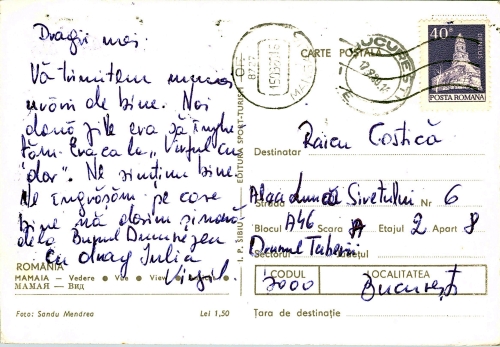 Dragii mei
Vă trimitem numai
urări de bine. Noi
două zile era să înghe
țăm. Era ca la „Vîrful cu
dor". Ne simțim bine.
Ne îngrășăm pe care
bine vă dorim și nouă
de la Bunul Dumnezeu
Cu drag Iulia
Virgil
ROMÂNIA
MAMAIA — Vedere • Vue • View •
МАМАЯ — Вид
Foto: Sandu Mendrea
Lei 1,50
EDITURA SPORT-TURISM
I. P. SIBIU
CARTE POSTALĂ
BUCUREȘTI
40B
DENSUȘ
POSTA ROMANA
Destinatar Raicu Costică
Strada Aleea Lunca Siretului Nr 6
Blocul A46 Scara A Etajul 2 Apart 8
Sectorul Drumul Taberei Județul
CODUL 7000
LOCALITATEA București
Țara de destinație